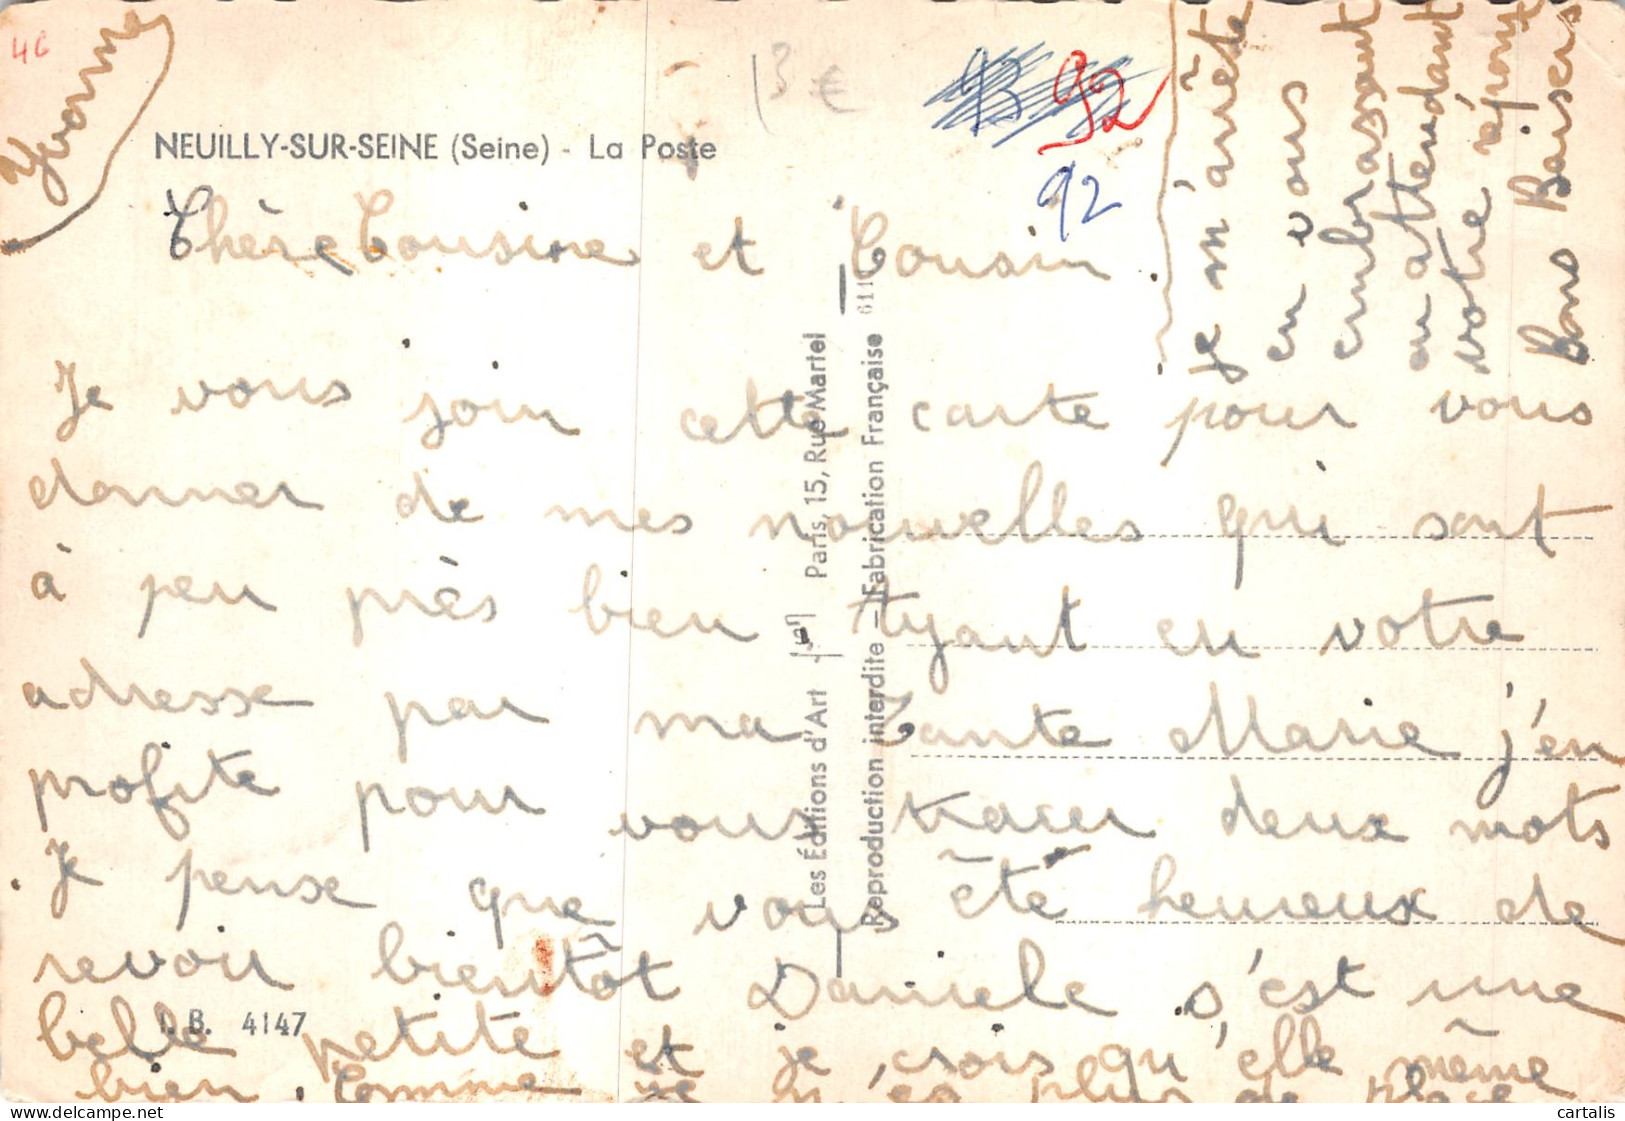 4c
13 €
93 92
92
NEUILLY-SUR-SEINE (Seine) - La Poste
Chère Cousine et Cousin.
Je vous join cette carte pour vous
donner de mes nouvelles qui sont
à peu près bien tyant eu votre
adresse par ma Tante Marie j'en
profite pour vous tracer deux mots
Je pense que vous êté heureux de
revoir bientôt Daniele s'est une
belle petite et je crois qu'elle même
bien. Comme je n'ai plus de place
je m'arrête
en vous
embrassant
en attendant
votre réponse
Bons Baisers
Yvonne
Les Éditions d'Art Paris, 15, Rue Martel
Reproduction interdite - Fabrication Française
I. B. 4147
cartalis